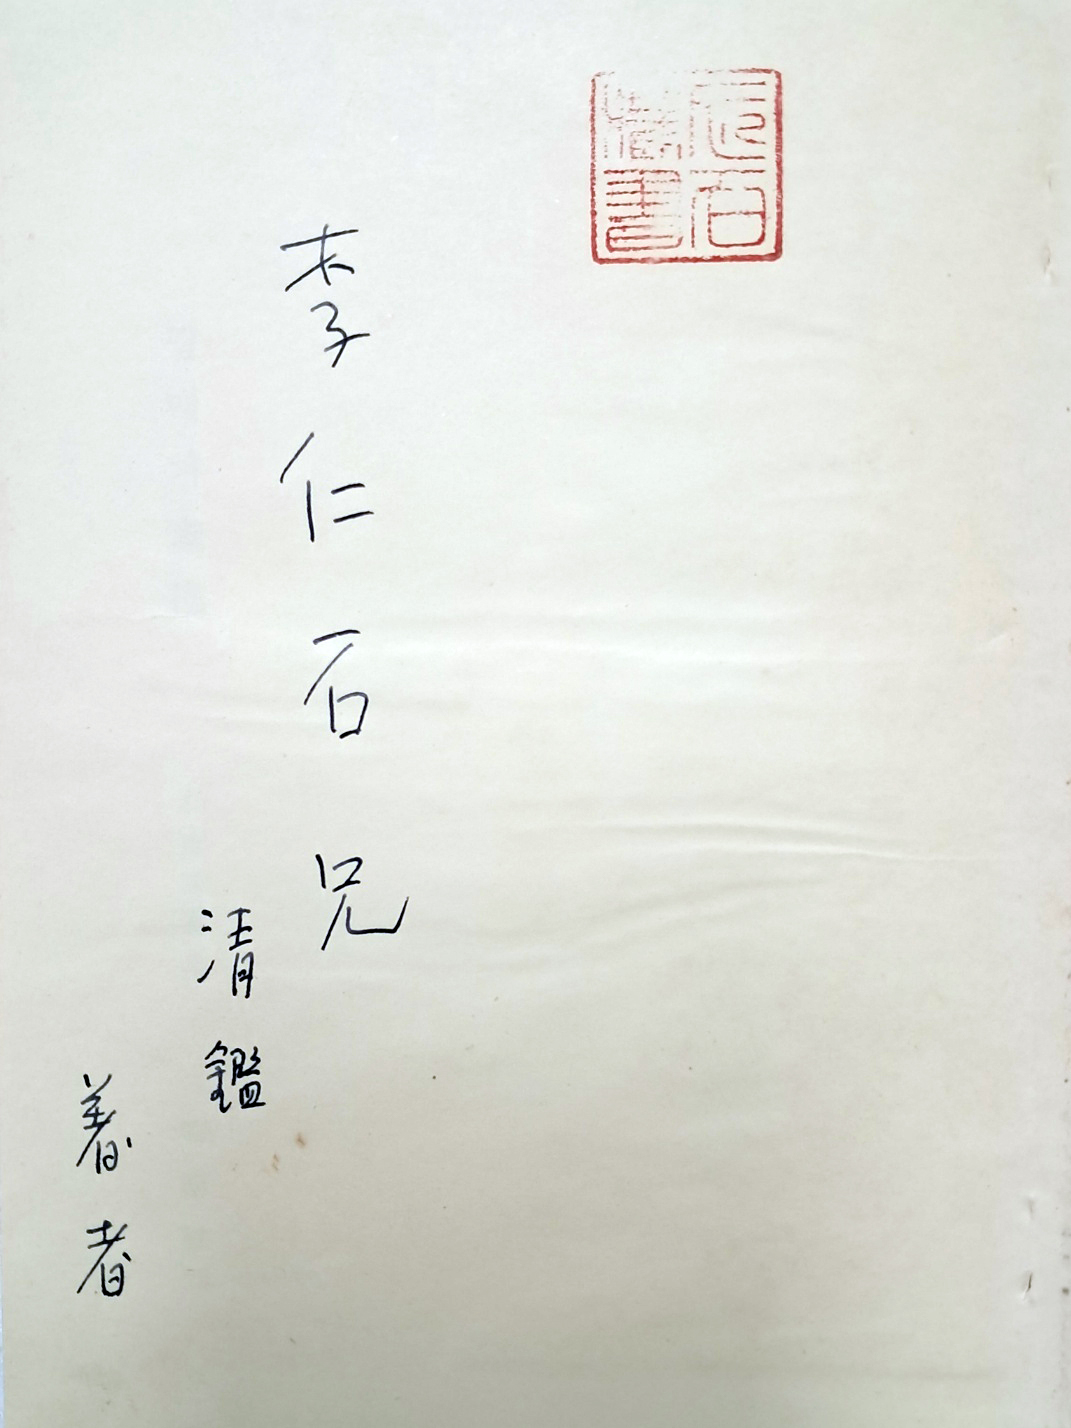 仁石藏書
李仁石兄
清鑑
著者